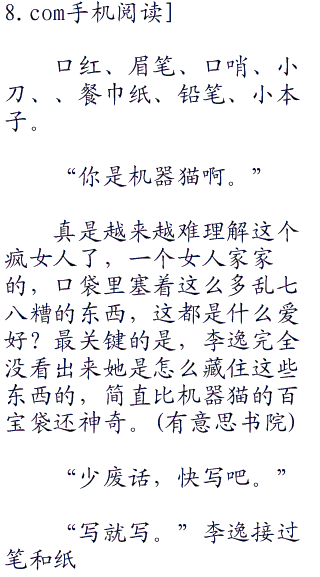 8.com手机阅读]
口红、眉笔、口哨、小
刀、、餐巾纸、铅笔、小本
子。
“你是机器猫啊。”
真是越来越难理解这个
疯女人了，一个女人家家
的，口袋里塞着这么多乱七
八糟的东西，这都是什么爱
好？最关键的是，李逸完全
没看出来她是怎么藏住这些
东西的，简直比机器猫的百
宝袋还神奇。(有意思书院)
“少废话，快写吧。”
“写就写。”李逸接过
笔和纸